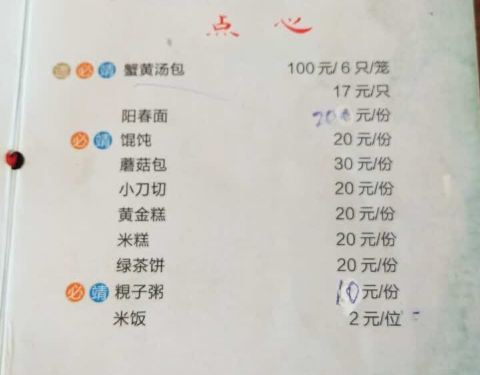 点心
必 靖 蟹黄汤包 100元/6只/笼
17元/只
阳春面 元/份
必 靖 馄饨 20元/份
蘑菇包 30元/份
小刀切 20元/份
黄金糕 20元/份
米糕 20元/份
绿茶饼 20元/份
必 靖 粯子粥 10元/份
米饭 2元/位